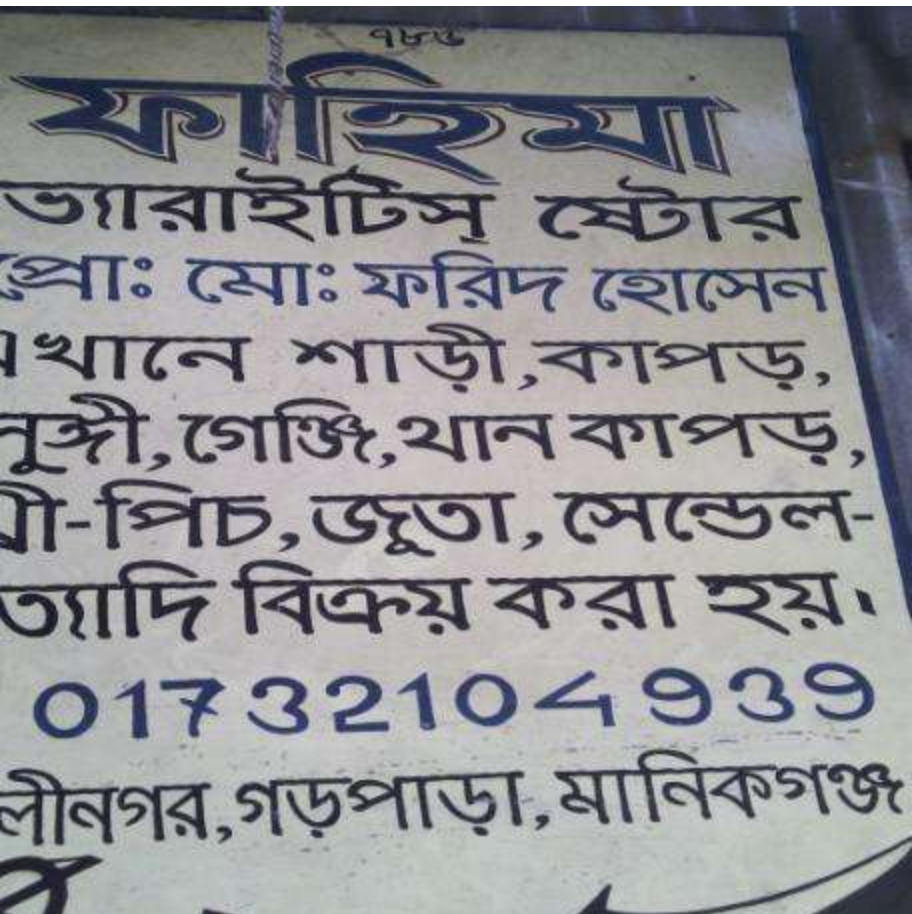 ৭৮৬
ফাহিমা
ভ্যারাইটিস্ ষ্টোর
প্রোঃ মোঃ ফরিদ হোসেন
এখানে শাড়ী,কাপড়,
লুঙ্গী,গেঞ্জি,থান কাপড়,
থ্রী-পিচ,জুতা,সেন্ডেল-
ইত্যাদি বিক্রয় করা হয়।
01732104939
গড়পাড়া,মানিকগঞ্জ